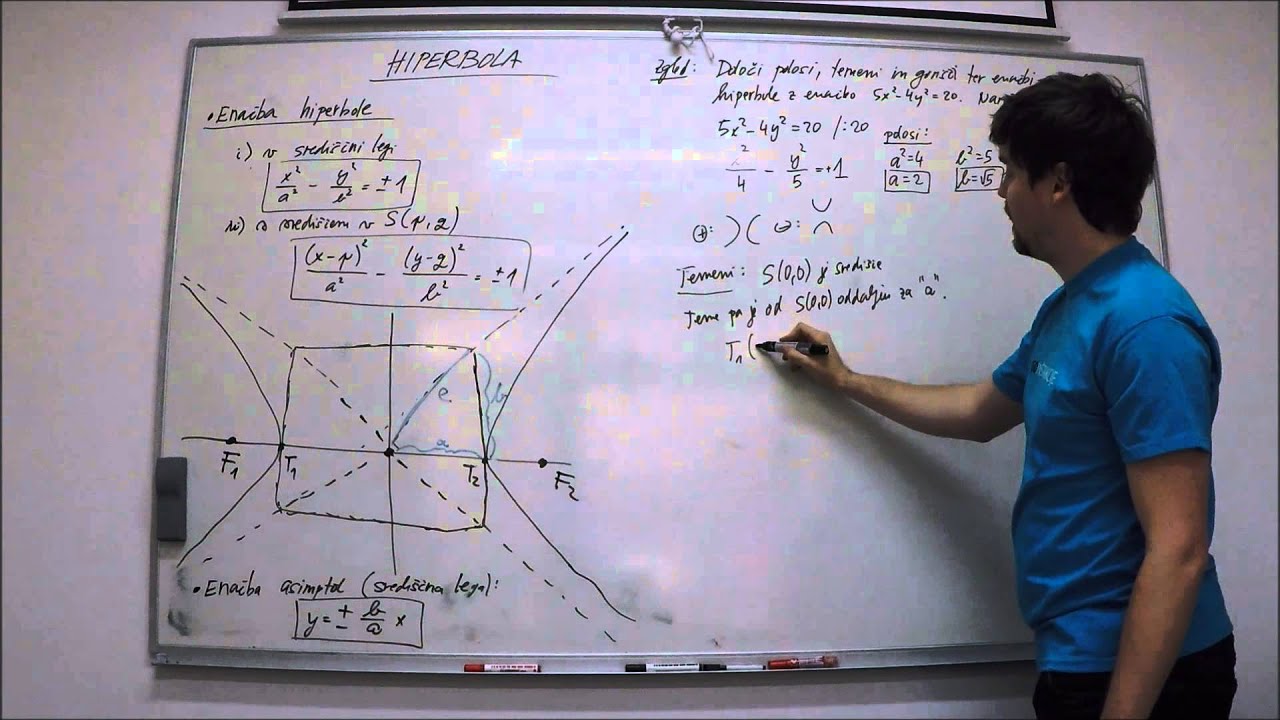 HIPERBOLA
• Enačba hiperbole
i) v središčni legi
x²/a² - y²/b² = ±1
ii) s središčem v S(p,q)
(x-p)²/a² - (y-q)²/b² = ±1
e
b
a
F₁ T₁ T₂ F₂
• Enačba asimptot (središčna lega):
y = ± b/a x
Zgled: Določi polosi, temeni in gorišči ter enačbi
hiperbole z enačbo 5x²-4y²=20.
5x²-4y²=20 /:20
x²/4 - y²/5 = +1
polosi:
a²=4 b²=5
a=2 b=√5
⊕: )( ⊖:
Temeni: S(0,0) je središče
Teme pa je od S(0,0) oddaljeno za "a".
T₁(